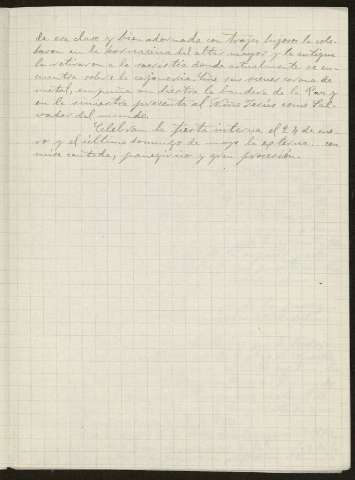 de esa clase y bien adornada con trajes lujosos la colo-
caron en la hornacina del altar mayor y la antigua
la retiraron a la sacristía donde actualmente se en-
cuentra sobre la cajonería. Ciñe sus sienes corona de
metal, empuña su diestra la bandera de la Paz y
en la siniestra presenta al Niño Jesús como Sal-
vador del mundo.
Celebran la fiesta interna el 24 de ene-
ro y el último domingo de mayo la externa con
misa cantada, panegírico y gran procesión.